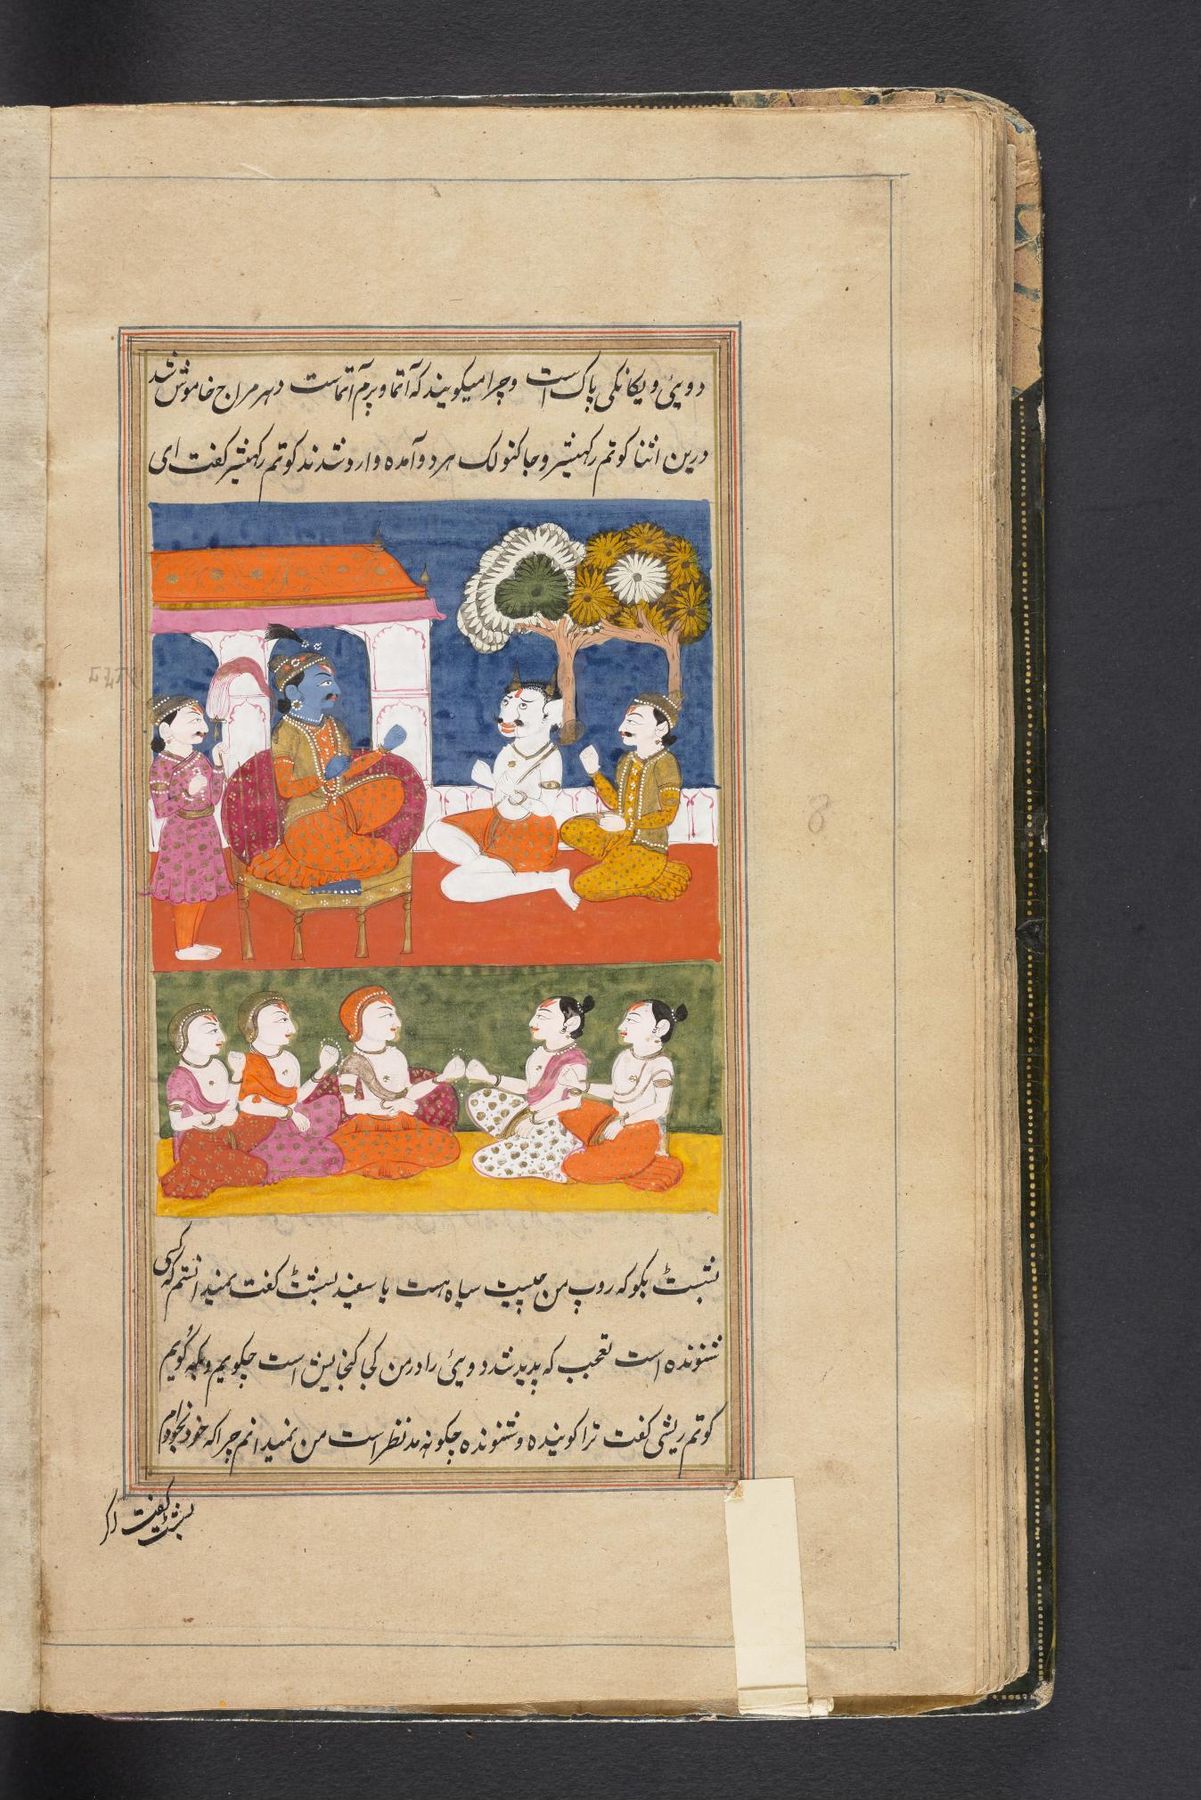 دویئ و یکانکی پاک است و چرا میکویند که آتما و پرم آتماست دهرمراج خاموش شد
درین اثنا کوتم رکهیشر و جاکنولک هر دو آمده وارد شدند کوتم رکهیشر کفت ای
بشبت بکو که روپ من چیست سیاه هست یا سفید بسشت کفت نمیدانستم که کسی
شنونده است تعجب که پدید شد دویئ را در من کجا کنجایش است چکویم و بکه کویم
کوتم ریشی کفت ترا کوینده و شنونده چکونه مد نظر است من نمیدانم چرا که خود بخودام
بسشت کفت اکر
8